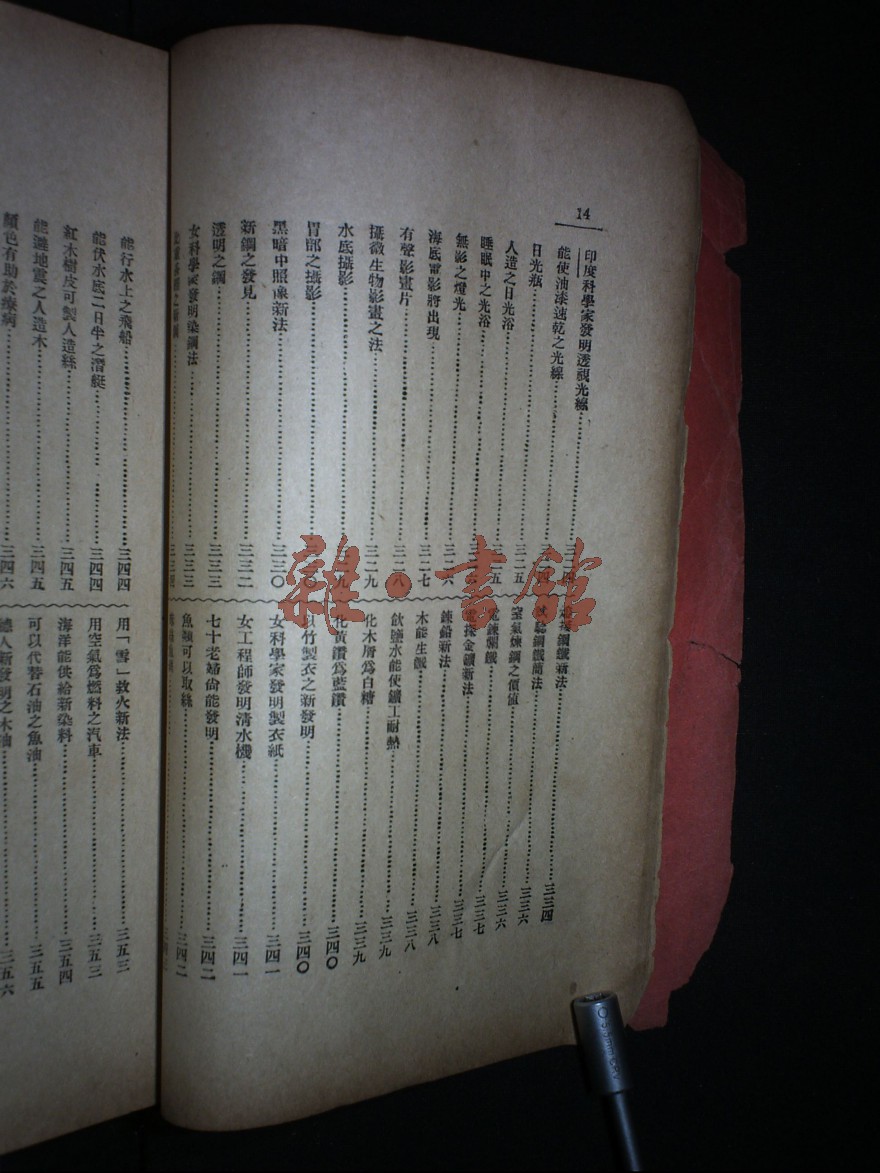 14
印度科學家發明透視光線
能使油漆速乾之光線
日光瓶
人造之日光浴 三二五
睡眠中之光浴
無影之燈光
海底電影將出現 三二七
有聲影畫片 三二八
攝微生物影畫之法 三二九
水底攝影
胃部之攝影
黑暗中照像新法 三三〇
新鋼之發見 三三二
透明之鋼 三三三
女科學家發明染鋼法 三三三
鋼鐵新法 三三四
鋼鐵 三三六
空氣煉鋼之價值 三三六
電鍊爛鐵 三三七
電探金鑛新法 三三七
鍊鉛新法 三三八
木能生鐵 三三八
飲鹽水能使鑛工耐熱 三三九
化木屑爲白糖 三三九
化黃鑽爲藍鑽 三四〇
以竹製衣之新發明 三四〇
女科學家發明製衣紙 三四一
女工程師發明清水機 三四一
七十老婦尙能發明 三四二
魚類可以取絲 三四二
能行水上之飛船 三四四
能伏水底二日半之潛艇 三四四
紅木樹皮可製人造絲 三四五
能避地震之人造木 三四五
顏色有助於療病 三四六
用「雪」救火新法 三五三
用空氣爲燃料之汽車 三五三
海洋能供給新染料 三五四
可以代替石油之魚油 三五五
人新發明之木油 三五六
雜·書館
0.5mm